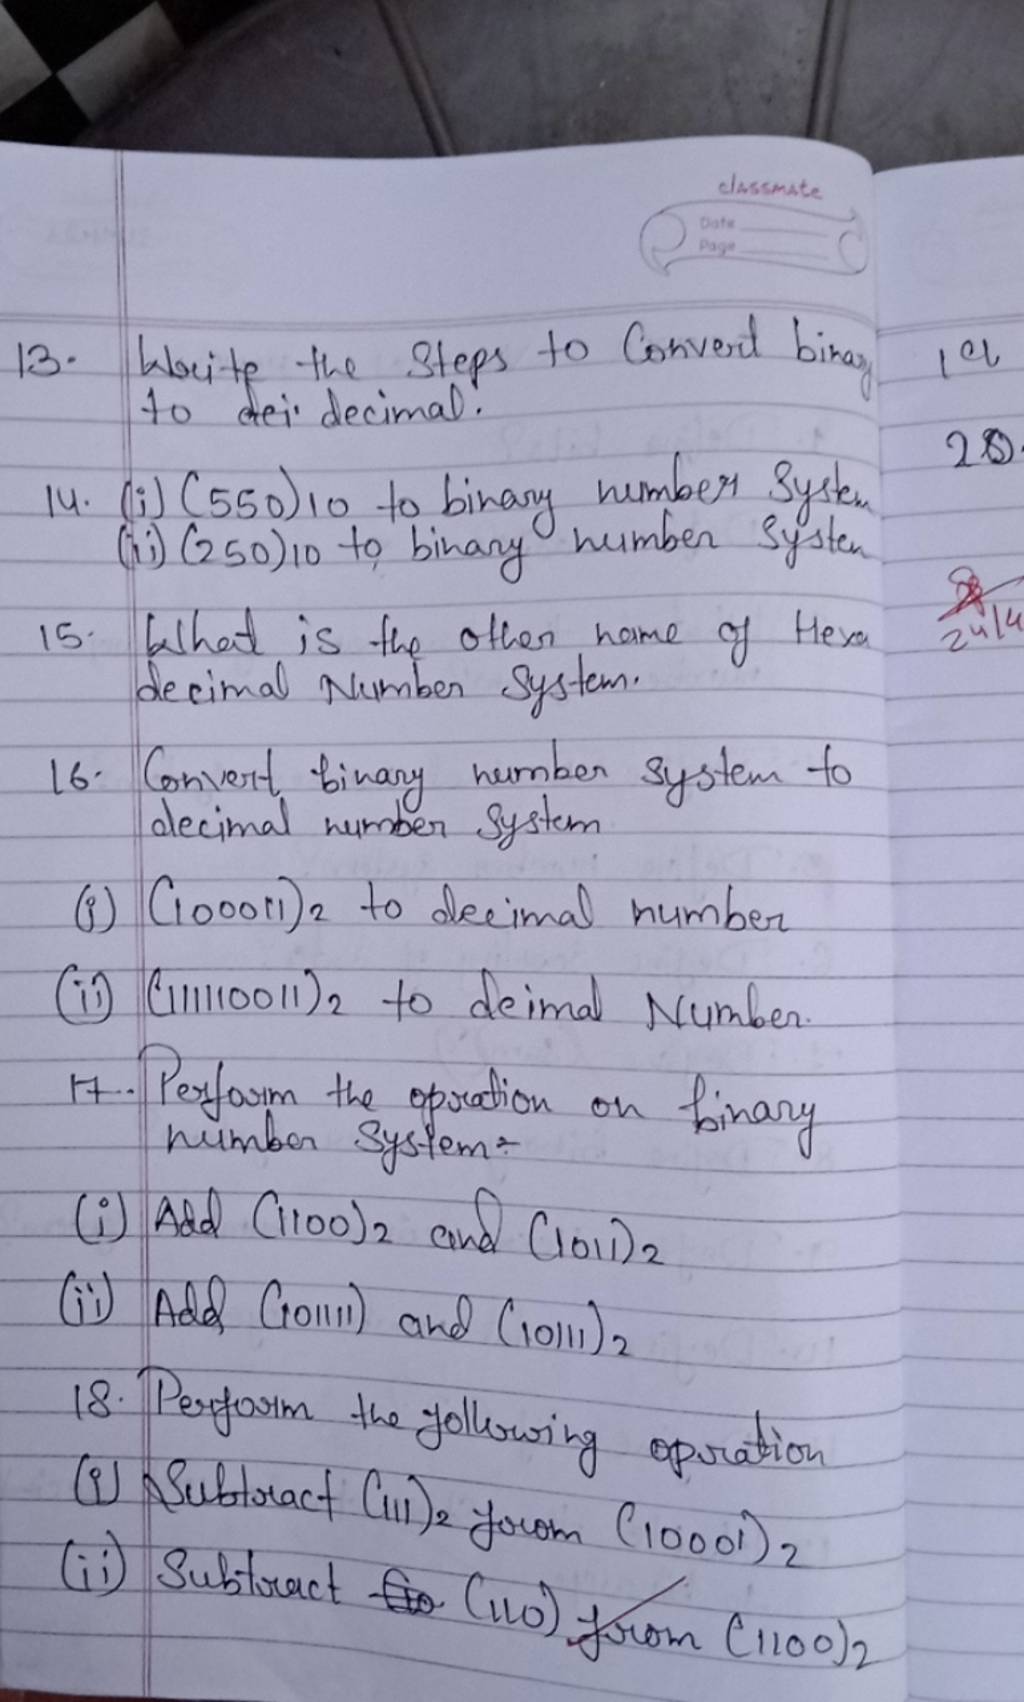 classmate
Date
Page
13. Write the Steps to Convert binary
to dei decimal.
14. (i) (550)10 to binary number System
(ii) (250)10 to binary number System
15. What is the other name of Hexa
decimal Number System.
16. Convert binary number system to
decimal number System
(i) (100011)2 to decimal number
(ii) (111110011)2 to deimal Number.
17. Perform the opration on binary
number System:-
(i) Add (1100)2 and (1011)2
(ii) Add (101111) and (10111)2
18. Perform the following opration
(i) Subtract (111)2 from (10001)2
(ii) Subtract (110) from (1100)2
20.
24/4